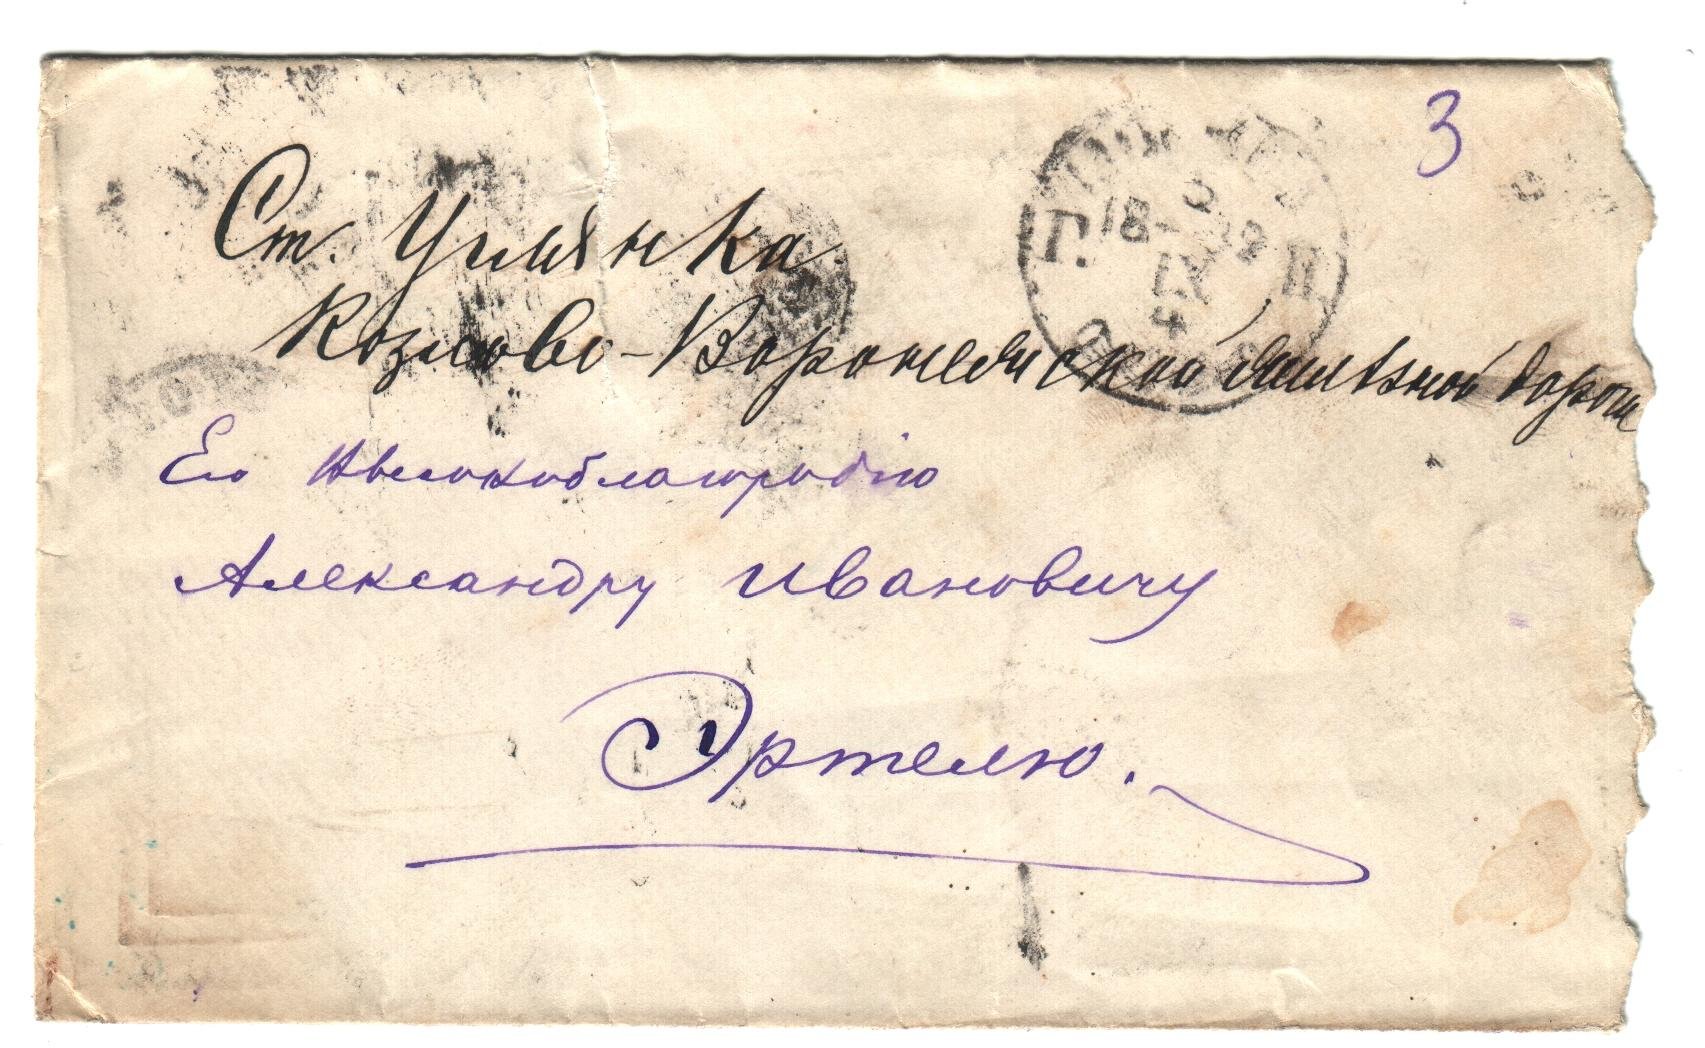 3
Ст. Усмянка
Козлово-Воронежской желѣзной дорог
Его Высокоблагородію
Александру Ивановичу
Эртелю.